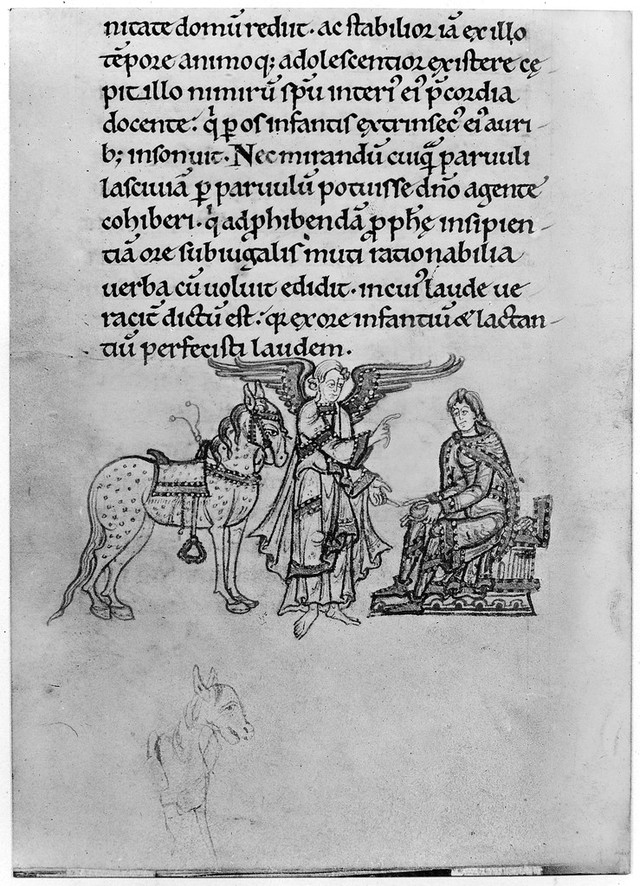 nitate domū rediit. ac stabilior iā ex illo
tēpore animoq; adolescentior existere cę
pit. illo nimirū spū interi᾿ ei᾿ p̄cordia
docente: q̇ ꝑ os infantis extrinsec᾿ ei᾿ auri-
b; insonuit. Nec mirandū cuiq̄ paruuli
lasciuiā ꝑ paruulū potuisse dn̄o agente
cohiberi. q̇ ad ꝓhibendā ꝓphę insipien-
tiā ore subiugalis muti rationabilia
uerba cū uoluit edidit. in cui᾿ laude ue
racit̄ dictū est: qr ex ore infantiū & lactan-
tiū perfecisti laudem.